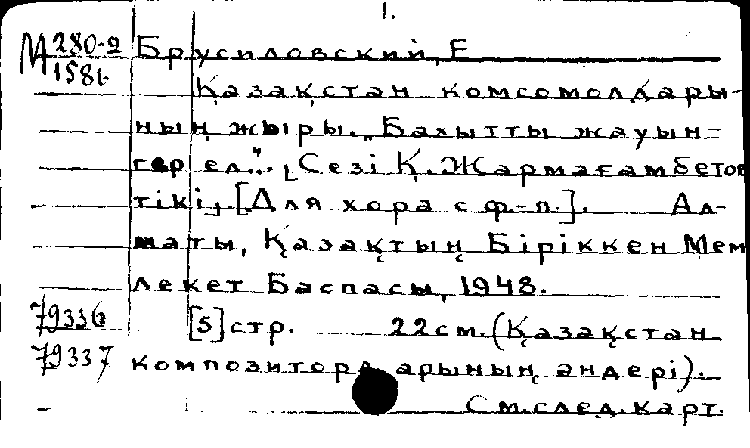 1.
М 280-2
1586
Брусиловский, Е
Қазақстан комсомолдары-
ның жыры. „Бахытты жауын-
гер ел"... [Сезі Қ. Жармағамбетов
тікі]. [Для хора с ф.-п.]. Ал-
маты, Қазақтың Біріккен Мем
лекет Баспасы, 1948.
79336 [5] стр. 22 см. (Қазақстан
79337 композиторларының әндері).
См. след. карт.